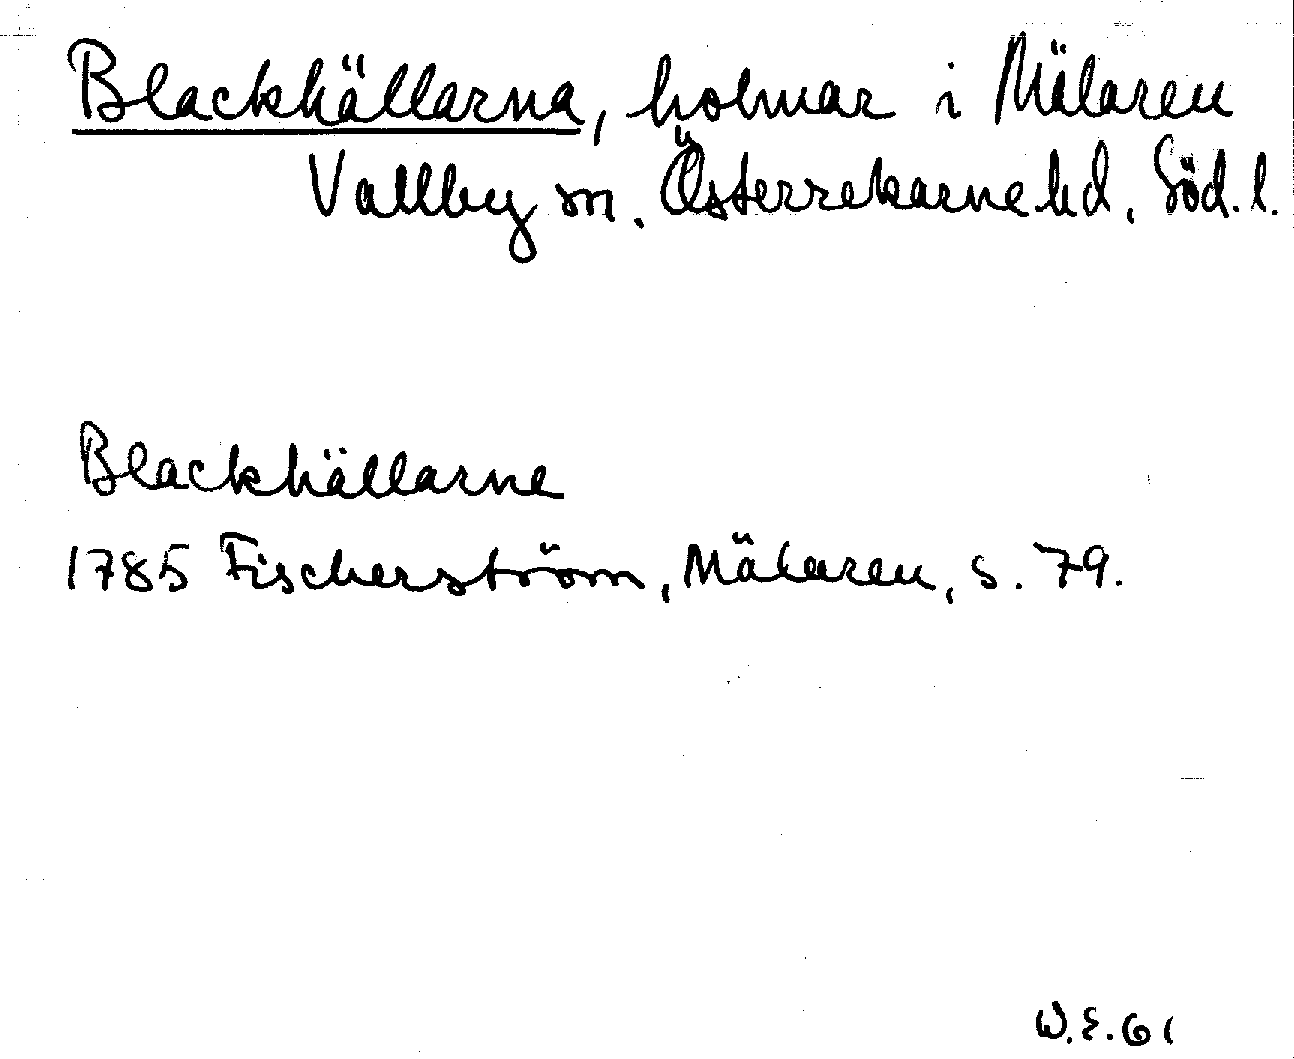 Blackhällarna, holmar i Mälaren
Vallby sn. Österrekarne hd, Söd. l.
Blackhällarne
1785 Fischerström, Mälaren, s. 79.
W.E. 61